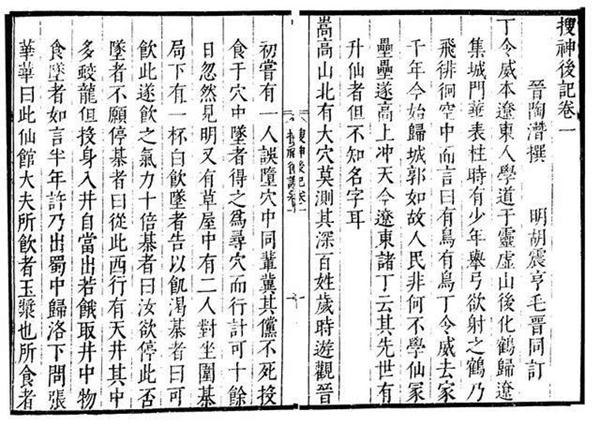 搜神後記卷一
晉陶潛撰　明胡震亨毛晉同訂
丁令威本遼東人學道于靈虛山後化鶴歸遼
集城門華表柱時有少年舉弓欲射之鶴乃
飛徘徊空中而言曰有鳥有鳥丁令威去家
千年今始歸城郭如故人民非何不學仙冢
壘壘遂高上冲天今遼東諸丁云其先世有
升仙者但不知名字耳
嵩高山北有大穴莫測其深百姓歲時遊觀晉
搜神後記卷一
初嘗有一人誤墮穴中同輩冀其儻不死投
食于穴中墜者得之爲尋穴而行計可十餘
日忽然見明又有草屋中有二人對坐圍棊
局下有一杯白飲墜者告以飢渴棊者曰可
飲此遂飲之氣力十倍棊者曰汝欲停此否
墜者不願停棊者曰從此西行有天井其中
多蛟龍但投身入井自當出若餓取井中物
食墜者如言半年許乃出蜀中歸洛下問張
華華曰此仙館大夫所飲者玉漿也所食者